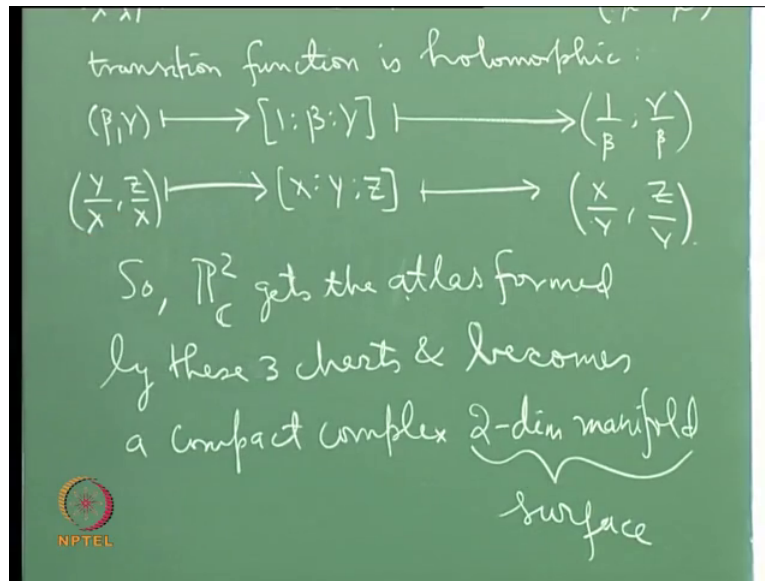 transition function is holomorphic:
(β,γ) ⟼ [1:β:γ] ⟼ (1/β, γ/β)
(Y/X, Z/X) ⟼ [X:Y:Z] ⟼ (X/Y, Z/Y).
So, ℙ²_ℂ gets the atlas formed
by these 3 charts & becomes
a compact complex 2-dim manifold
surface
NPTEL